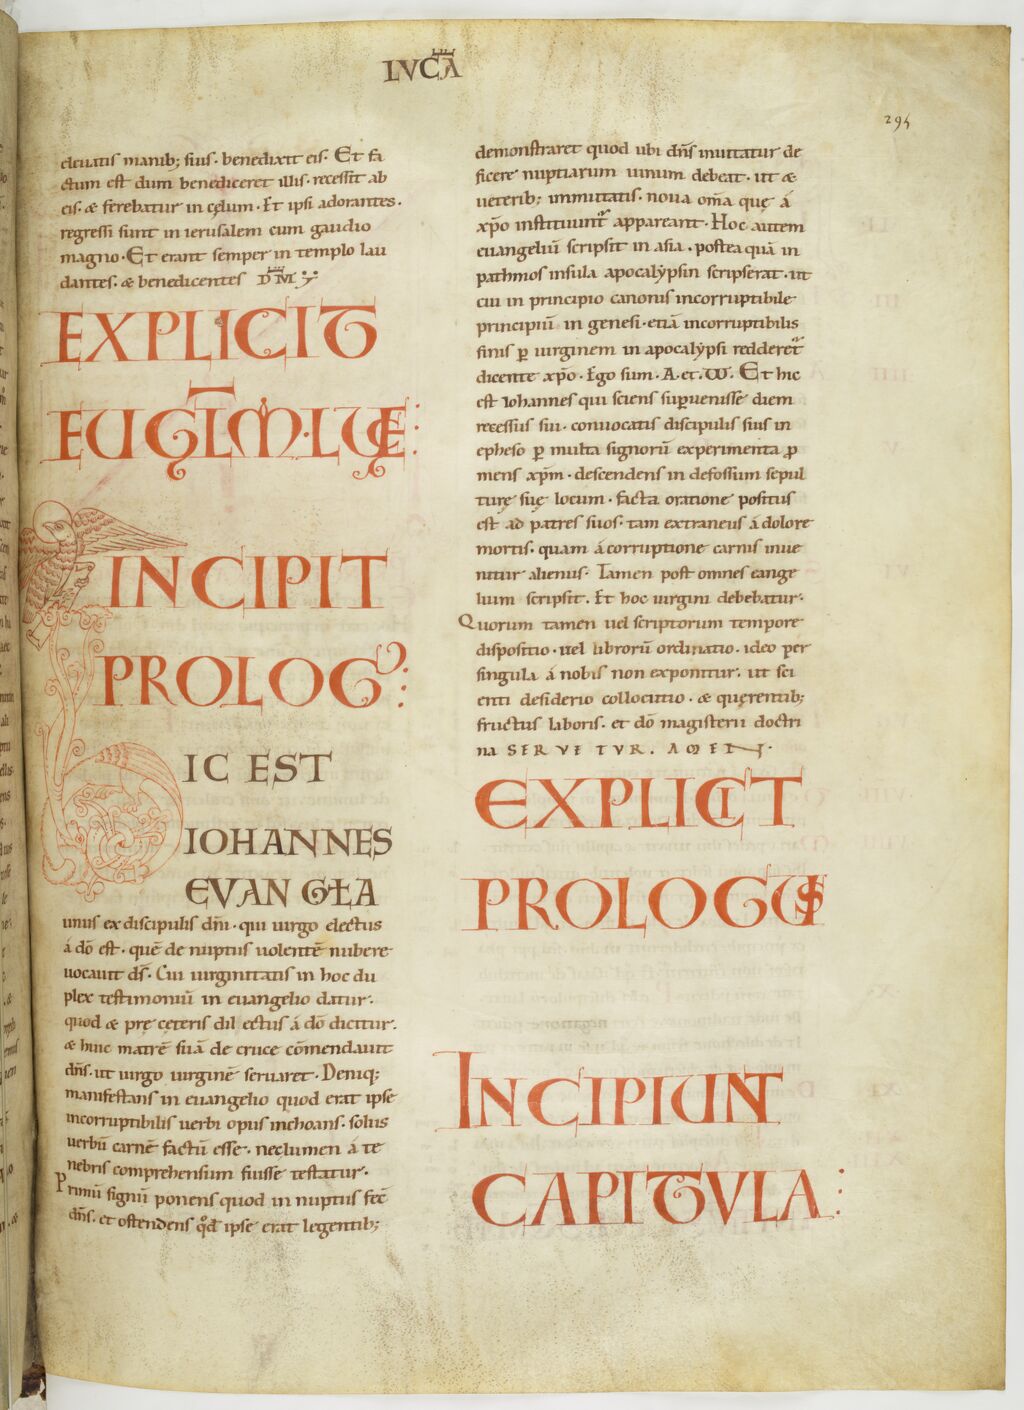 LVCĀ
295
eleuatis manib; suis· benedixit eis· Et fa
ctum est dum benediceret illis· recessit ab
eis· & ferebatur in cęlum· Et ipsi adorantes·
regressi sunt in ierusalem cum gaudio
magno· Et erant semper in templo lau
dantes· & benedicentes DM̄
EXPLICIT
EUGL̅M·LUCE:
INCIPIT
PROLOG᾽:
HIC EST
IOHANNES
EVANGŁA
unus ex discipulis dn̄i· qui uirgo electus
á dō est· quē de nuptiis uolentē nubere
uocauit ds̄· Cui uirginitatis in hoc du
plex testimoniū in euangelio datur·
quod & prę ceteris dilectus á dō dicitur·
& huic matrē suā de cruce cōmendauit
dn̄s· ut uirgo uirginē seruaret· Deniq;
manifestans in euangelio quod erat ipse
incorruptibilis uerbi opus inchoans· solus
uerbū carnē factū esse· nec lumen á te
nebris comprehensum fuisse testatur·
Primū signū ponens quod in nuptiis fec̄
dn̄s· et ostendens qd̄ ipse erat legentib;
demonstraret quod ubi dn̄s inuitatur de
ficere nuptiarum uinum debeat· ut &
ueterib; immutatis· noua om̄a quę á
xp̄o instituunt᷑ appareant· Hoc autem
euangeliū scripsit in asia· postea quā in
pathmos insula apocalypsin scripserat· ut
cui in principio canonis incorruptibile
principiū in genesi· etiā incorruptibilis
finis ꝑ uirginem in apocalypsi redderet᷑
dicente xp̄o· Ego sum· A· et· ω· Et hic
est iohannes qui sciens supuenisse diem
recessus sui· conuocatis discipulis suis in
epheso ꝑ multa signorū experimenta ꝓ
mens xp̄m· descendens in defossum sepul
turę suę locum· facta oratione positus
est ad patres suos· tam extraneus á dolore
mortis· quam á corruptione carnis inue
nitur alienus· Tamen post omnes eange
lium scripsit· Et hoc uirgini debebatur·
Quorum tamen uel scriptorum tempore
dispositio· uel librorū ordinatio· ideo per
singula á nobis non exponitur· ut sci
enti desiderio collocutio· & quęrentib;
fructus laboris· et dō magisterii doctri
na SERVETVR· AMEN·
EXPLICIT
PROLOGUS
INCIPIUNT
CAPITVLA: